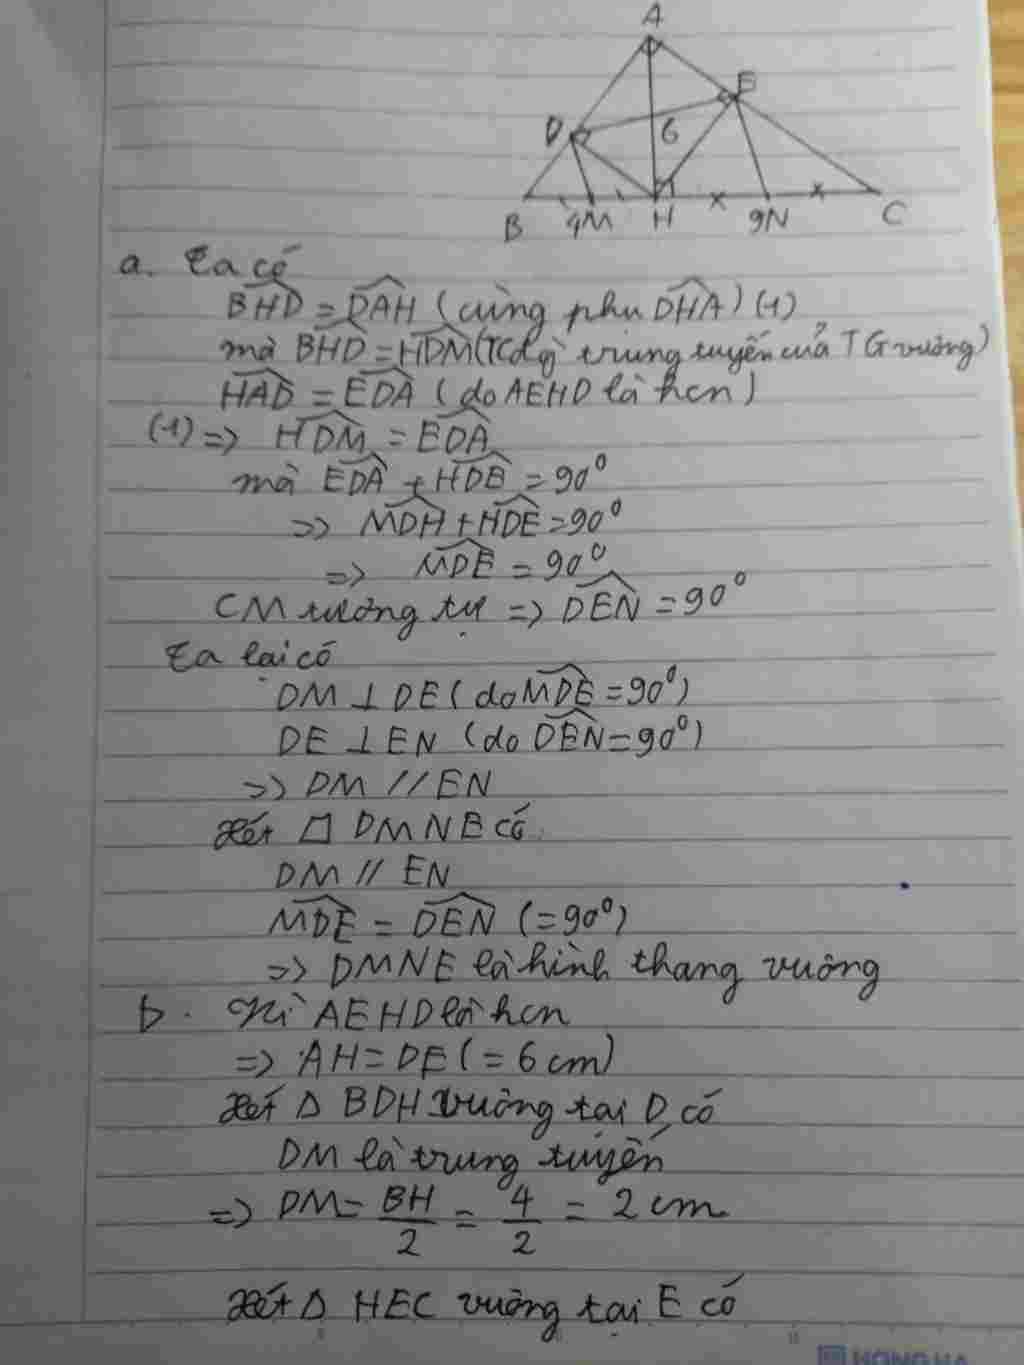 A
E
D
6
B 4M H 9N C
a. Ta có
BHD = DAH (cùng phụ DHA) (1)
mà BHD = HDM (TCđg trung tuyến của TG vuông)
HAD = EDA (do AEHD là hcn)
(1) => HDM = EDA
mà EDA + HDE = 90⁰
=> MDH + HDE = 90⁰
=> MDE = 90⁰
CM tương tự => DEN = 90⁰
Ta lại có
DM ⊥ DE (do MDE = 90⁰)
DE ⊥ EN (do DEN = 90⁰)
=> DM // EN
Xét □ DMNE có
DM // EN
MDE = DEN (= 90⁰)
=> DMNE là hình thang vuông
b. Vì AEHD là hcn
=> AH = DE (= 6 cm)
Xét Δ BDH vuông tại D có
DM là trung tuyến
=> DM = BH/2 = 4/2 = 2 cm
Xét Δ HEC vuông tại E có
HONG HA